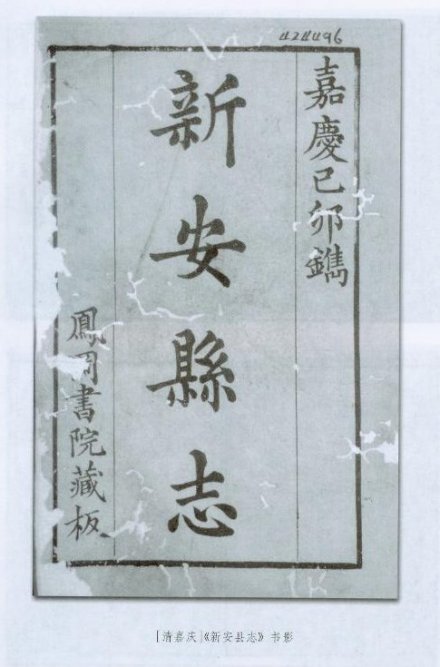 424496
嘉慶己卯鐫
新安縣志
鳳岡書院藏板
[清嘉庆]《新安县志》书影